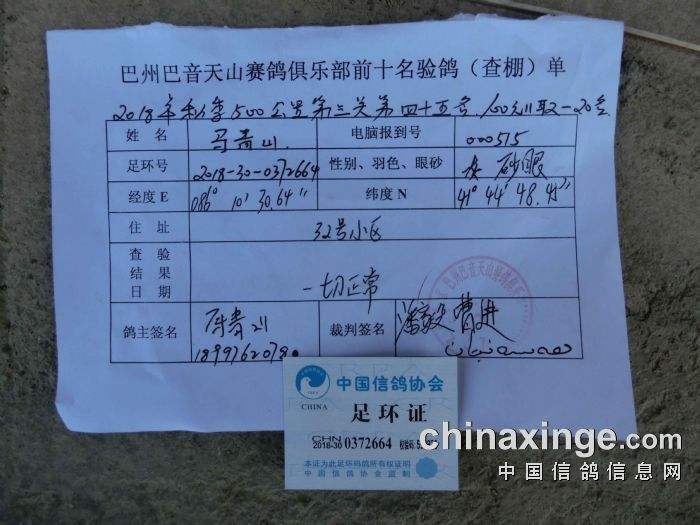 巴州巴音天山赛鸽俱乐部前十名验鸽（查棚）单
2018年秋季500公里第三关第四十五名.100元11取一20名
姓 名 马青山. 电脑报到号 000515
足环号 2018-30-0372664 性别、羽色、眼砂 灰 砂眼
经度E 086° 10′ 30.64″ 纬度N 41° 44′ 48.45″
住 址 32号小区
查 验 结 果 日 期 一切正常
鸽主签名 裁判签名 曹进
中国信鸽协会
CHINA
足环证
CHN
2018-30 0372664
本证为此足环鸽所有权证明
中国信鸽协会监制
chinaxinge.com
中国信鸽信息网